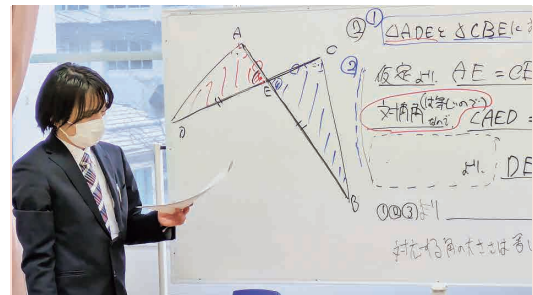 A
C
E
D
B
② ① △ADEと△CBEに
② 仮定より. AE = CE
対頂角(は等しいので) なので ∠AED =
より. DE
①②③より
対応する角の大きさは等し